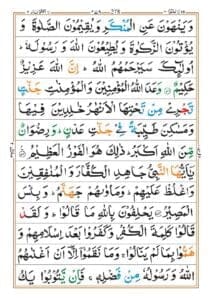 وَيَنْهَوْنَ عَنِ الْمُنْكَرِ وَيُقِيْمُوْنَ الصَّلٰوةَ وَ
يُؤْتُوْنَ الزَّكٰوةَ وَيُطِيْعُوْنَ اللّٰهَ وَرَسُوْلَهٗ ؕ
اُولٰٓئِكَ سَيَرْحَمُهُمُ اللّٰهُ ؕ اِنَّ اللّٰهَ عَزِيْزٌ
حَكِيْمٌ وَعَدَ اللّٰهُ الْمُؤْمِنِيْنَ وَالْمُؤْمِنٰتِ جَنّٰتٍ
تَجْرِيْ مِنْ تَحْتِهَا الْاَنْهٰرُ خٰلِدِيْنَ فِيْهَا
وَمَسٰكِنَ طَيِّبَةً فِيْ جَنّٰتِ عَدْنٍ ؕ وَرِضْوَانٌ
مِّنَ اللّٰهِ اَكْبَرُ ؕ ذٰلِكَ هُوَ الْفَوْزُ الْعَظِيْمُ
يٰٓاَيُّهَا النَّبِيُّ جَاهِدِ الْكُفَّارَ وَالْمُنٰفِقِيْنَ
وَاغْلُظْ عَلَيْهِمْ ؕ وَمَاْوٰىهُمْ جَهَنَّمُ ؕ وَبِئْسَ
الْمَصِيْرُ يَحْلِفُوْنَ بِاللّٰهِ مَا قَالُوْا ؕ وَلَقَدْ
قَالُوْا كَلِمَةَ الْكُفْرِ وَكَفَرُوْا بَعْدَ اِسْلَامِهِمْ وَ
هَمُّوْا بِمَا لَمْ يَنَالُوْا ۚ وَمَا نَقَمُوْٓا اِلَّآ اَنْ اَغْنٰىهُمُ
اللّٰهُ وَرَسُوْلُهٗ مِنْ فَضْلِهٖ ۚ فَاِنْ يَّتُوْبُوْا يَكُ